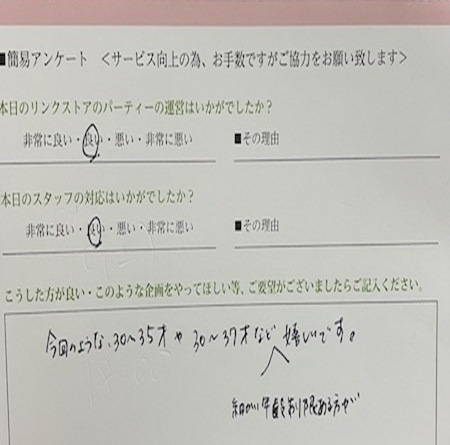 ■簡易アンケート ＜サービス向上の為、お手数ですがご協力をお願い致します＞
本日のリンクストアのパーティーの運営はいかがでしたか？
非常に良い・良い・悪い・非常に悪い ■その理由
本日のスタッフの対応はいかがでしたか？
非常に良い・良い・悪い・非常に悪い ■その理由
こうした方が良い・このような企画をやってほしい等、ご要望がございましたらご記入ください。
今回のような、30～35才や30～37才など嬉しいです。
細かい年齢制限ある方が